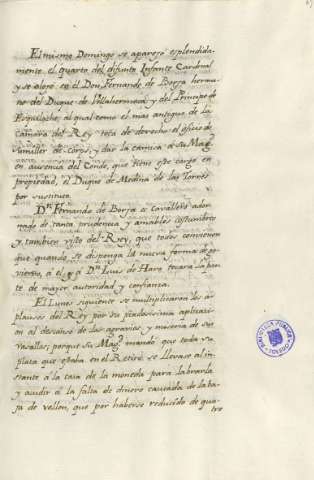 El mismo Domingo se aparejó esplendida-
mente el quarto del difunto Infante Cardenal
y se aloxo en el Don Fernando de Borja herma-
no del Duque de Villahermosa, y del Principe de
Esquilache, al qual como el mas antiguo de la
Camara del Rey toca de derecho el oficio de
sumiller de Corps, y dar la camisa a su Magd.
en ausencia del Conde, que tiene este cargo en
propiedad, el Duque de Medina de las Torres
por sustituto.
Dn. Fernando de Borja es Cavallero ador-
nado de tanta prudencia y amables costumbres
y tambien visto del Rey, que todos convienen
que quando se disponga la nueva forma de go-
vierno, a él y a Dn. Luis de Haro tocara la par-
te de mayor autoridad y confianza.
El Lunes siguiente se multiplicaron los a-
plausos del Rey por su piadosisima aplicazi-
on al descanso de los agravios, y miseria de sus
Vasallos; porque su Magd. mandó que toda la
plata que estaba en el Retiro se llevase al in-
stante a la casa de la moneda para labrarla
y acudir a la falta de dinero causada de la ba-
ja de vellon, que por haberse reducido de qua-
tro
BIBLIOTECA PUBLICA
TOLEDO